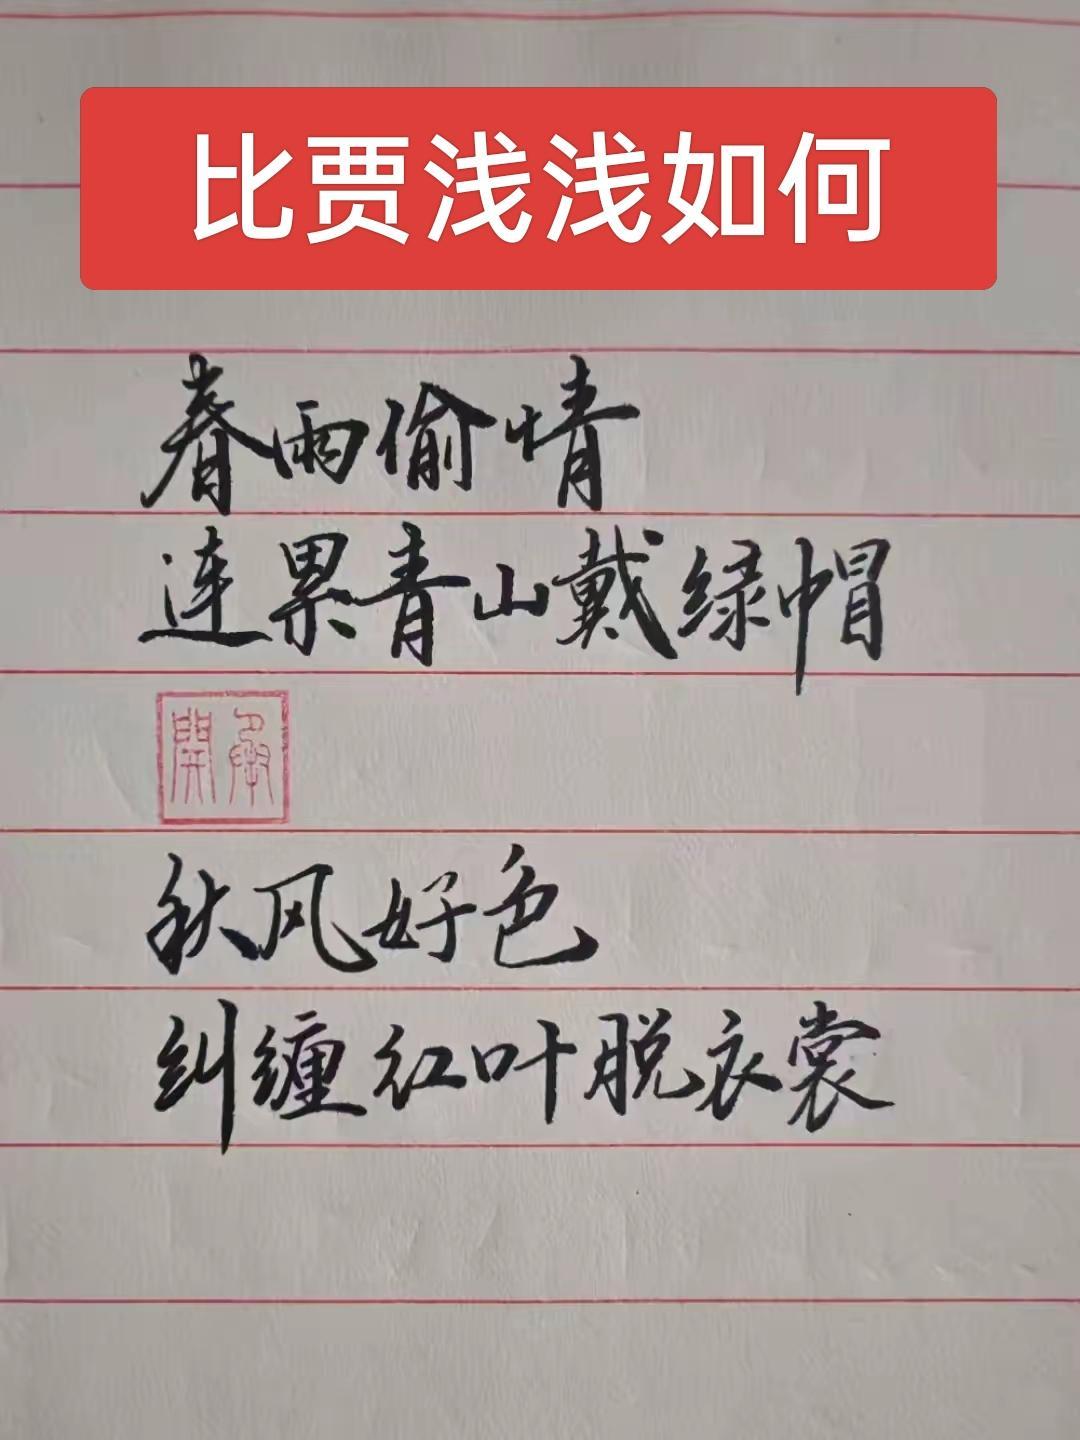 比贾浅浅如何
春雨偷情
连累青山戴绿帽
秋风好色
纠缠红叶脱衣裳